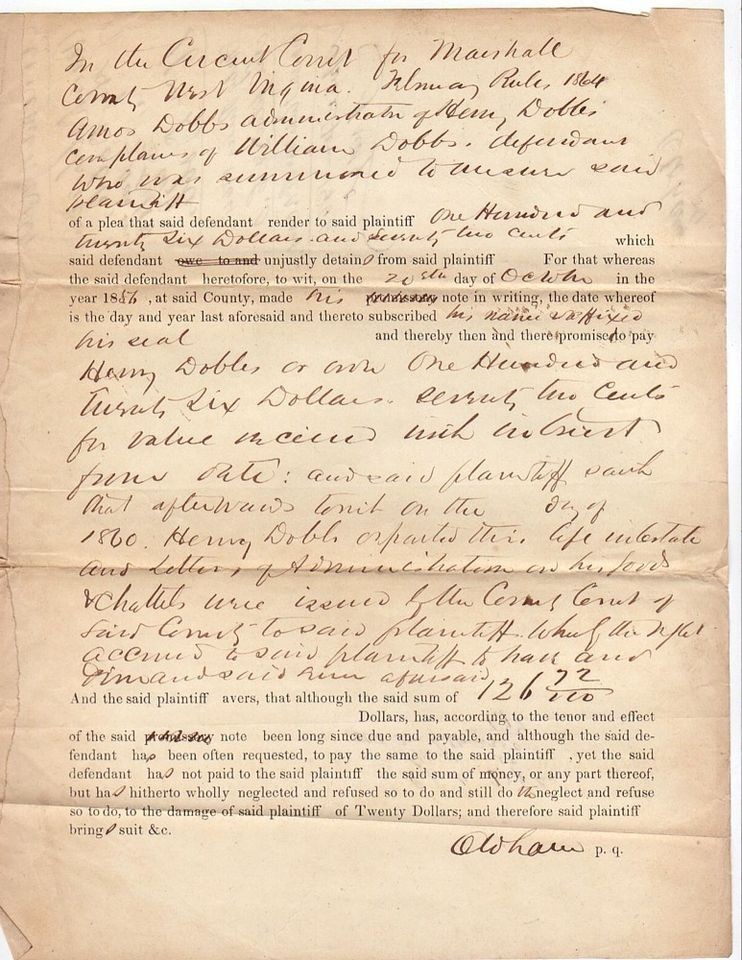 In the Circuit Court for Marshall
County West Virginia. February Rules 1864
Amos Dobbs administrator of Henry Dobbs
complains of William Dobbs. defendant
who was summoned to answer said
plaintiff
of a plea that said defendant render to said plaintiff One Hundred and
twenty Six Dollars and Seventy two cents which
said defendant owe to and unjustly detains from said plaintiff For that whereas
the said defendant heretofore, to wit, on the day of October in the
year 1856, at said County, made his promissory note in writing, the date whereof
is the day and year last aforesaid and thereto subscribed his name & affixed
his seal and thereby then and there promised to pay
Henry Dobbs or order One Hundred and
Twenty Six Dollars. seventy two Cents
for value received with interest
from date: and said plaintiff saith
that afterwards to wit on the day of
1860. Henry Dobbs departed this life intestate
and Letters of Administration on his goods
& Chattels were issued by the County Court of
said County to said plaintiff. whereby the right
accrued to said plaintiff to have and
Demand said sum aforesaid
And the said plaintiff avers, that although the said sum of 126 72/100
Dollars, has, according to the tenor and effect
of the said promissory note been long since due and payable, and although the said de-
fendant has been often requested, to pay the same to the said plaintiff , yet the said
defendant has not paid to the said plaintiff the said sum of money, or any part thereof,
but has hitherto wholly neglected and refused so to do and still doth neglect and refuse
so to do, to the damage of said plaintiff of Twenty Dollars; and therefore said plaintiff
brings suit &c.
Oldham p. q.